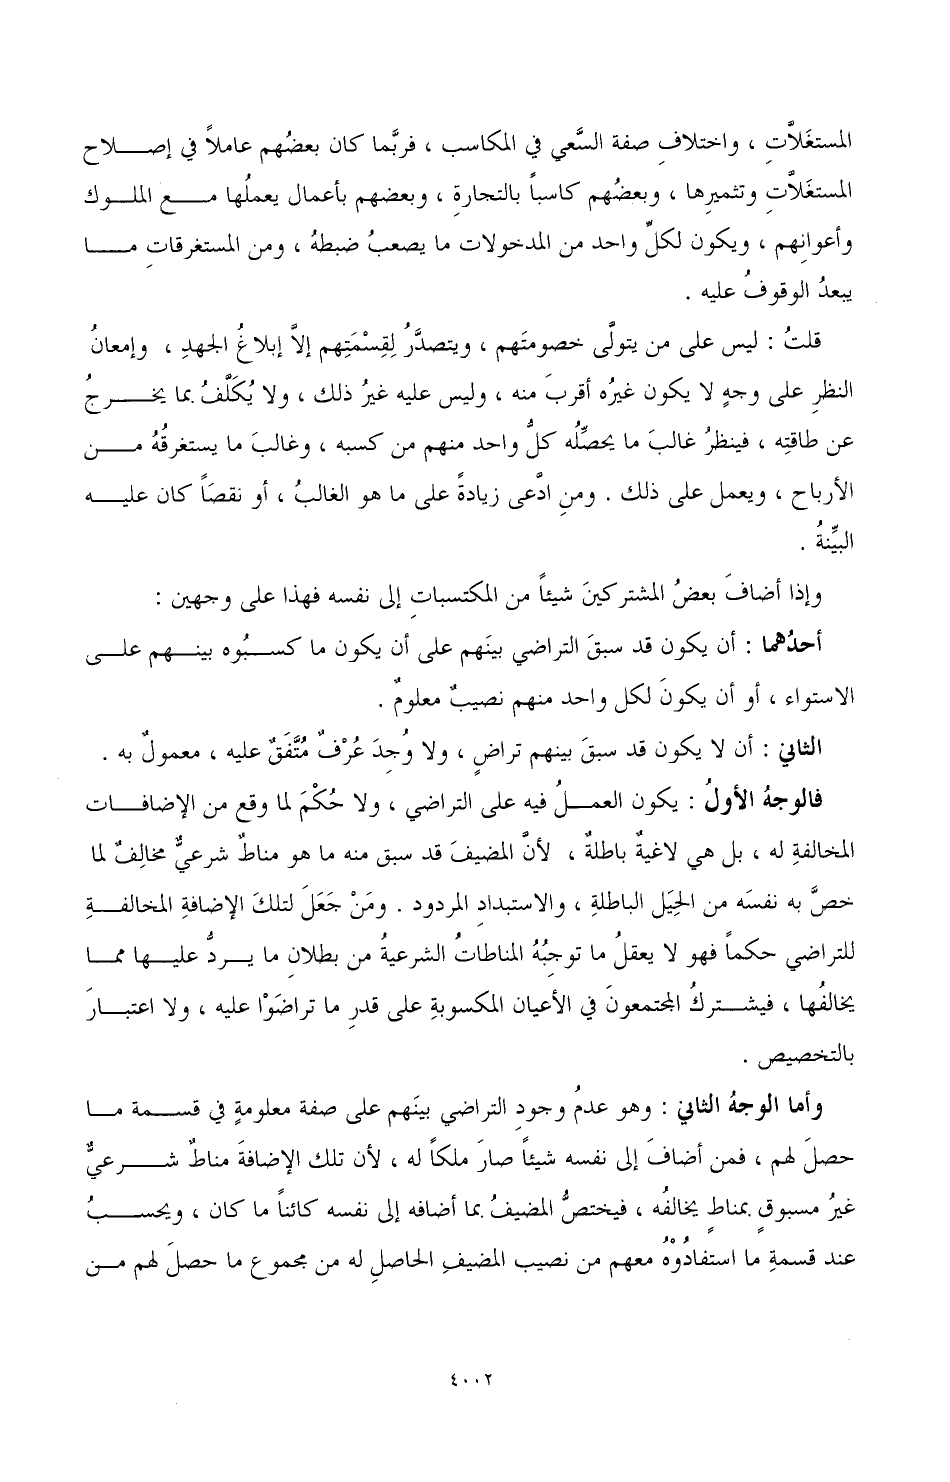 المستغَلاَّتِ ، واختلافِ صفة السَّعي في المكاسب ، فربَّما كان بعضُهم عاملاً في إصلاح
المستغَلاَّتِ وتثميرِها ، وبعضُهم كاسباً بالتجارةِ ، وبعضهم بأعمال يعملُها مع الملوك
وأعوانِهم ، ويكون لكلِّ واحد من المدخولات ما يصعبُ ضبطهُ ، ومن المستغرقاتِ ما
يبعدُ الوقوفُ عليه .
قلتُ : ليس على من يتولَّى خصومتَهم ، ويتصدَّرُ لِقِسْمَتِهم إلاَّ إبلاغُ الجهدِ ، وإمعانُ
النظرِ على وجهٍ لا يكون غيرُه أقربَ منه ، وليس عليه غيرُ ذلك ، ولا يُكَلَّفُ بما يخرجُ
عن طاقتِه ، فينظرُ غالبَ ما يحصِّلُه كلُّ واحد منهم من كسبه ، وغالبَ ما يستغرقُهُ من
الأرباح ، ويعمل على ذلك . ومنِ ادَّعى زيادةً على ما هو الغالبُ ، أو نقصَاً كان عليه
البيِّنةُ .
وإذا أضافَ بعضُ المشتركينَ شيئاً من المكتسباتِ إلى نفسه فهذا على وجهين :
أحدُهما : أن يكون قد سبقَ التراضي بينَهم على أن يكون ما كسبُوه بينهم على
الاستواء ، أو أن يكونَ لكل واحد منهم نصيبٌ معلومٌ .
الثاني : أن لا يكون قد سبقَ بينهم تراضٍ ، ولا وُجِدَ عُرْفٌ مُتَّفَقٌ عليه ، معمولٌ به .
فالوجهُ الأولُ : يكون العملُ فيه على التراضي ، ولا حُكْمَ لما وقع من الإضافات
المخالفةِ له ، بل هي لاغيةٌ باطلةٌ ، لأنَّ المضيفَ قد سبق منه ما هو مناطٌ شرعيٌّ مخالِفٌ لما
خصَّ به نفسَه من الحِيَلِ الباطلةِ ، والاستبدادِ المردود . ومَنْ جَعَلَ لتلكَ الإضافةِ المخالفةِ
للتراضي حكماً فهو لا يعقلُ ما توجبُهُ المناطاتُ الشرعيةُ من بطلانِ ما يردُّ عليها مما
يخالفُها ، فيشتركُ المجتمعونَ في الأعيان المكسوبةِ على قدرِ ما تراضَوْا عليه ، ولا اعتبارَ
بالتخصيصِ .
وأما الوجهُ الثاني : وهو عدمُ وجودِ التراضي بينَهم على صفة معلومةٍ في قسمة ما
حصلَ لهم ، فمن أضافَ إلى نفسه شيئاً صارَ ملكاً له ، لأن تلك الإضافةَ مناطٌ شرعيٌّ
غيرُ مسبوقٍ بمناطٍ يخالفُه ، فيختصُّ المضيفُ بما أضافه إلى نفسه كائناً ما كان ، ويحسبُ
عند قسمةِ ما استفادُوْهُ معهم من نصيبِ المضيفِ الحاصلِ له من مجموع ما حصلَ لهم من
٤٠٠٢